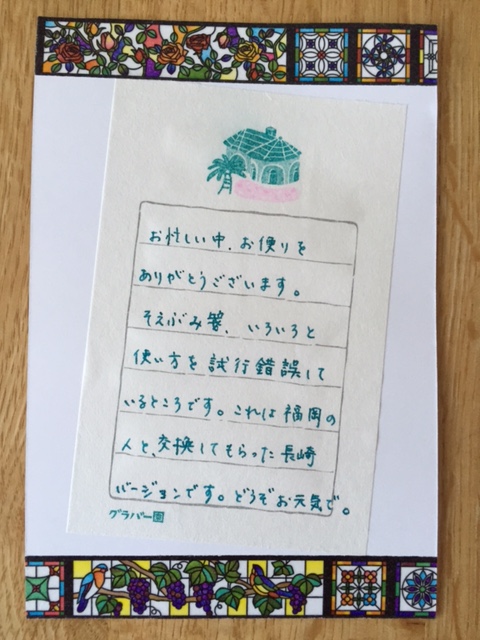 お忙しい中、お便りを
ありがとうございます。
そえぶみ箋、いろいろと
使い方を試行錯誤して
いるところです。これは福岡の
人と、交換してもらった長崎
バージョンです。どうぞお元気で。
グラバー園